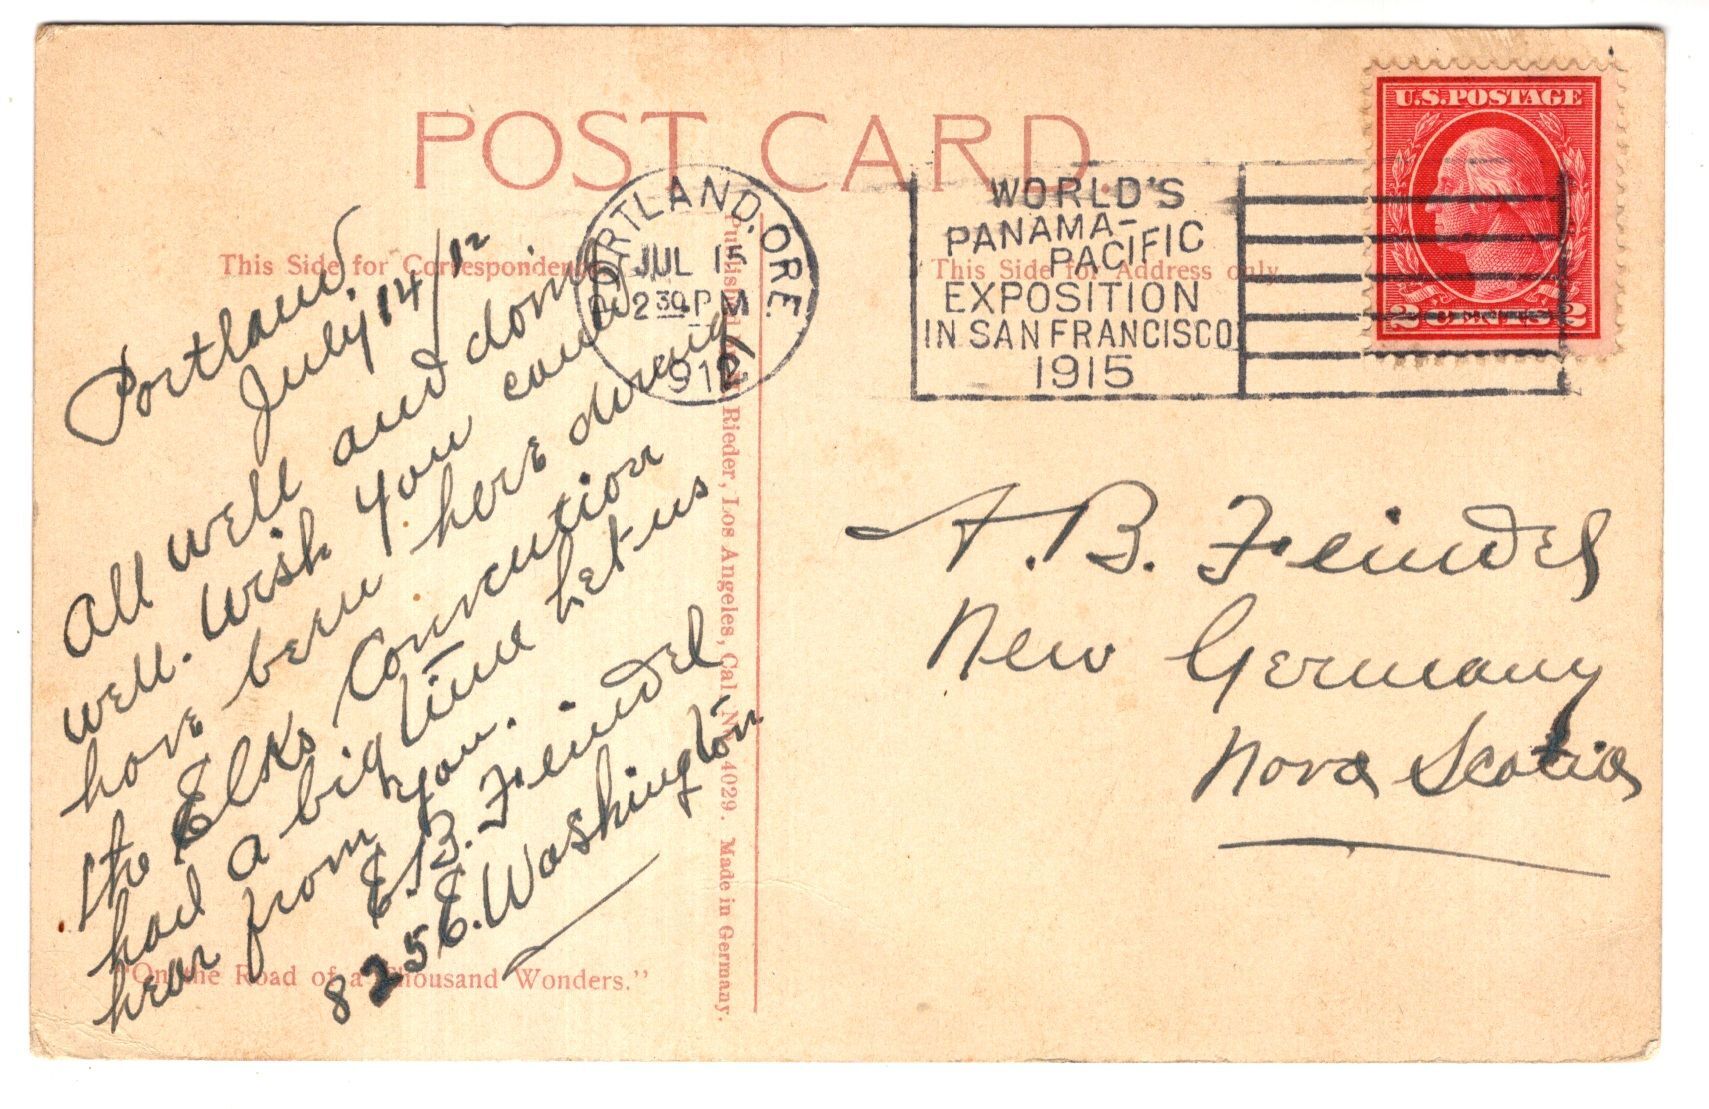 POST CARD.
This Side for Correspondence
This Side for Address only
Portland.
July 14/12
All well and doing
well. Wish you could
have been here during
the Elks Convention
had a big time Let us
hear from you.
E. B. Feindel
825 E. Washington
"On the Road of a Thousand Wonders."
Published by M. Rieder, Los Angeles, Cal. No. 4029. Made in Germany.
PORTLAND, ORE.
JUL 15
2 30 P M
1912
WORLD'S
PANAMA-
PACIFIC
EXPOSITION
IN SAN FRANCISCO
1915
U.S. POSTAGE
2 CENTS 2
A. B. Feindel
New Germany
Nova Scotia